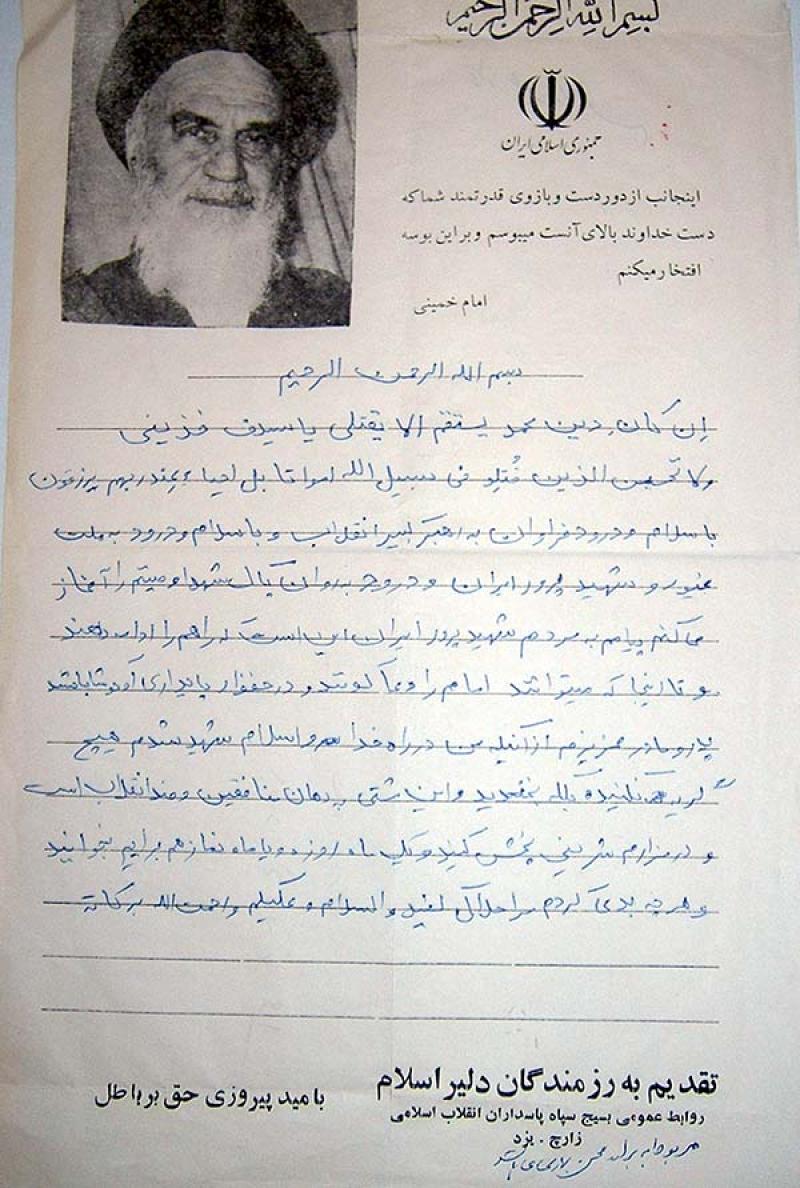 بسم الله الرحمن الرحیم
جمهوری اسلامی ایران
اینجانب از دور دست و بازوی قدرتمند شما که
دست خداوند بالای آنست میبوسم و بر این بوسه
افتخار میکنم
امام خمینی
بسم الله الرحمن الرحیم
ان کان دین محمد یستقم الا یقتلی یا سیوف خذینی
ولا تحسبن الذین قُتلو فی سبیل الله امواتا بل احیاء عند ربهم یرزقون
با سلام و درود فراوان به رهبر کبیر انقلاب و با سلام و درود به ملت
غیور و شهید پرور ایران و درود به روان پاک شهدا وصیتم را آغاز
میکنم پیامم به مردم شهید پرور ایران این است که راهم را ادامه دهند
و تا اینجا که میتوانند امام را دعا کنند و در
پدر و مادر عزیزم از اینکه من در راه خدا و اسلام شهید شدم هیچ
گریه نکنید بلکه بخندید و این مشتی بدهان منافقین و ضد انقلاب است
و در مزارم شیرینی پخش کنید و یک ماه روزه و ماه نماز هم برایم بخوانید
و هر چه بدی کردم مرا حلال کنید والسلام و علیکم و رحمت الله برکاته
تقدیم به رزمندگان دلیر اسلام
با مید پیروزی حق بر باطل
روابط عمومی بسیج سپاه پاسداران انقلاب اسلامی
زارچ ـ یزد
مربوط به برادر محسن